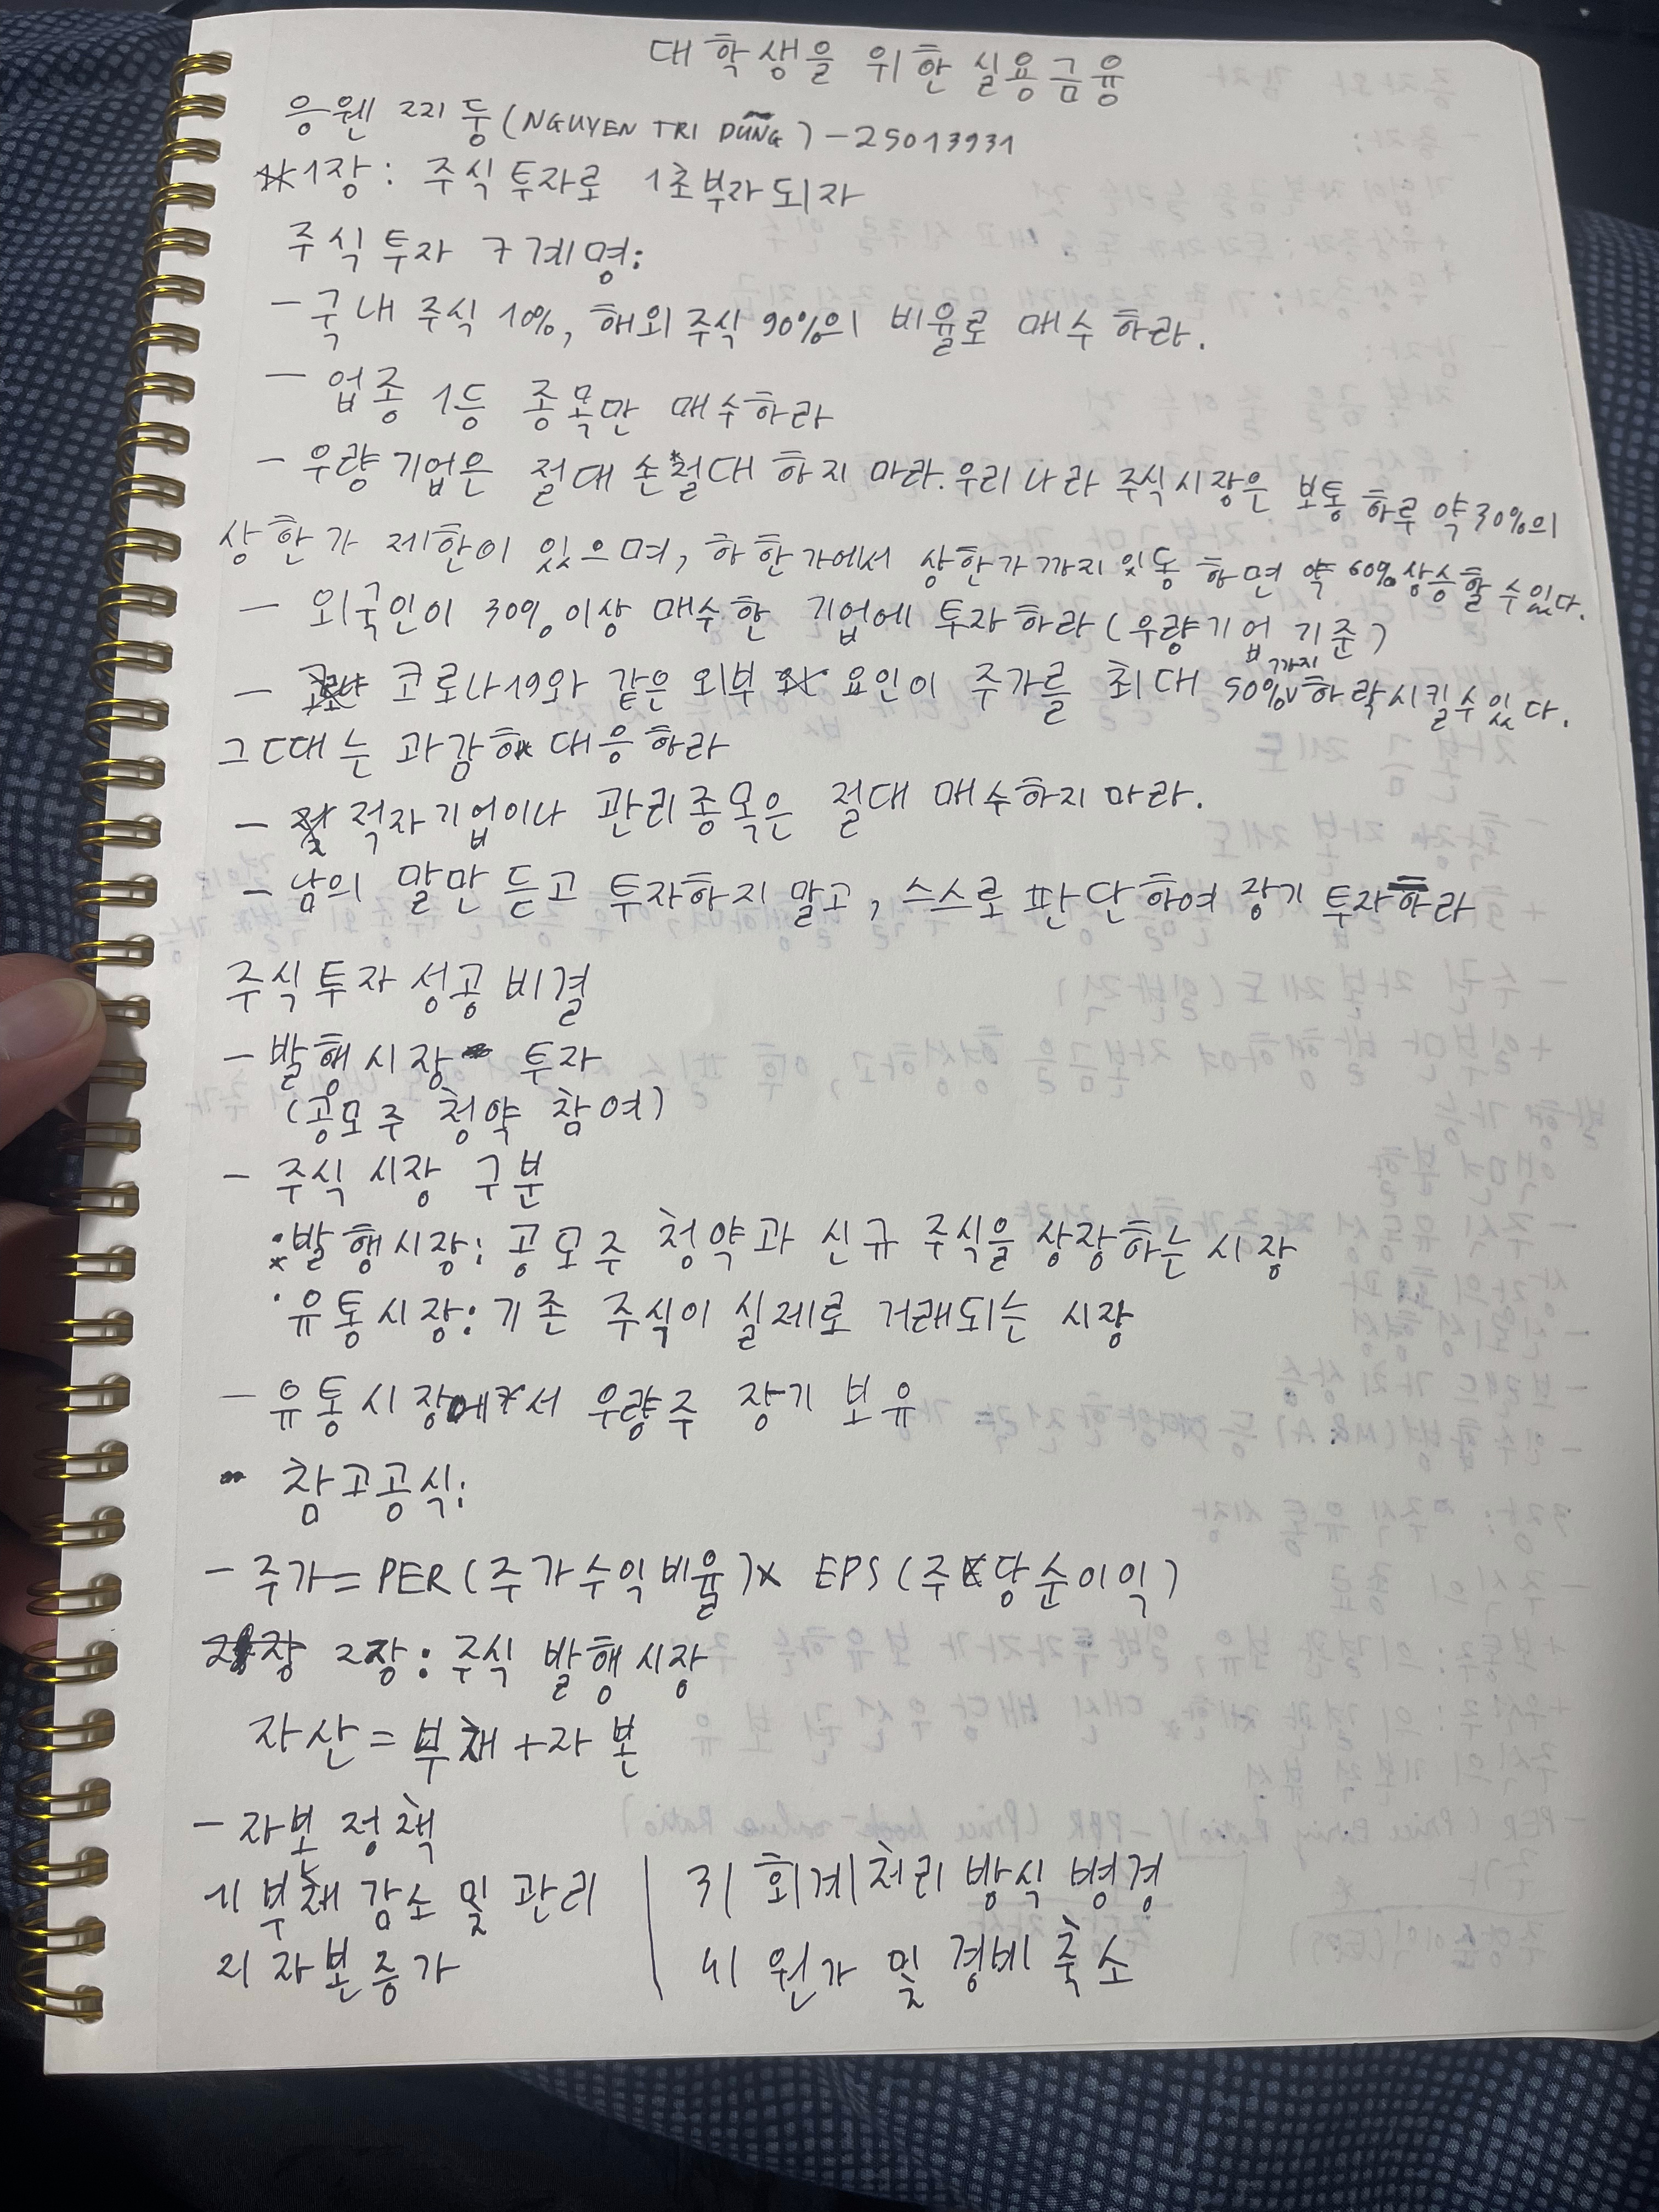 대학생을 위한 실용금융
응웬 찌 둥 (NGUYEN TRI DŨNG) - 25013931
1장 : 주식투자로 1초부자되자
주식투자 7계명:
- 국내 주식 10%, 해외주식 90%의 비율로 매수하라.
- 업종 1등 종목만 매수하라
- 우량기업은 절대 손절대 하지 마라. 우리나라 주식시장은 보통 하루 약 30%의
상한가 제한이 있으며, 하한가에서 상한가까지 이동하면 약 60% 상승할 수 있다.
- 외국인이 30% 이상 매수한 기업에 투자하라 (우량기업 기준)
- 코로나19와 같은 외부 요인이 주가를 최대 50%까지 하락시킬수있다.
그때는 과감하 대응하라
- 적자기업이나 관리종목은 절대 매수하지 마라.
- 남의 말만 듣고 투자하지 말고, 스스로 판단하여 장기 투자하라
주식투자 성공 비결
- 발행시장 투자
(공모주 청약 참여)
- 주식 시장 구분
· 발행시장: 공모주 청약과 신규 주식을 상장하는 시장
· 유통시장: 기존 주식이 실제로 거래되는 시장
- 유통시장에서 우량주 장기 보유
- 참고공식:
- 주가 = PER (주가수익비율) x EPS (주당순이익)
2장 : 주식 발행시장
자산 = 부채 + 자본
- 자본 정책
1) 부채 감소 및 관리 | 3) 회계처리 방식 병경
2) 자본증가 | 4) 원가 및 경비 축소